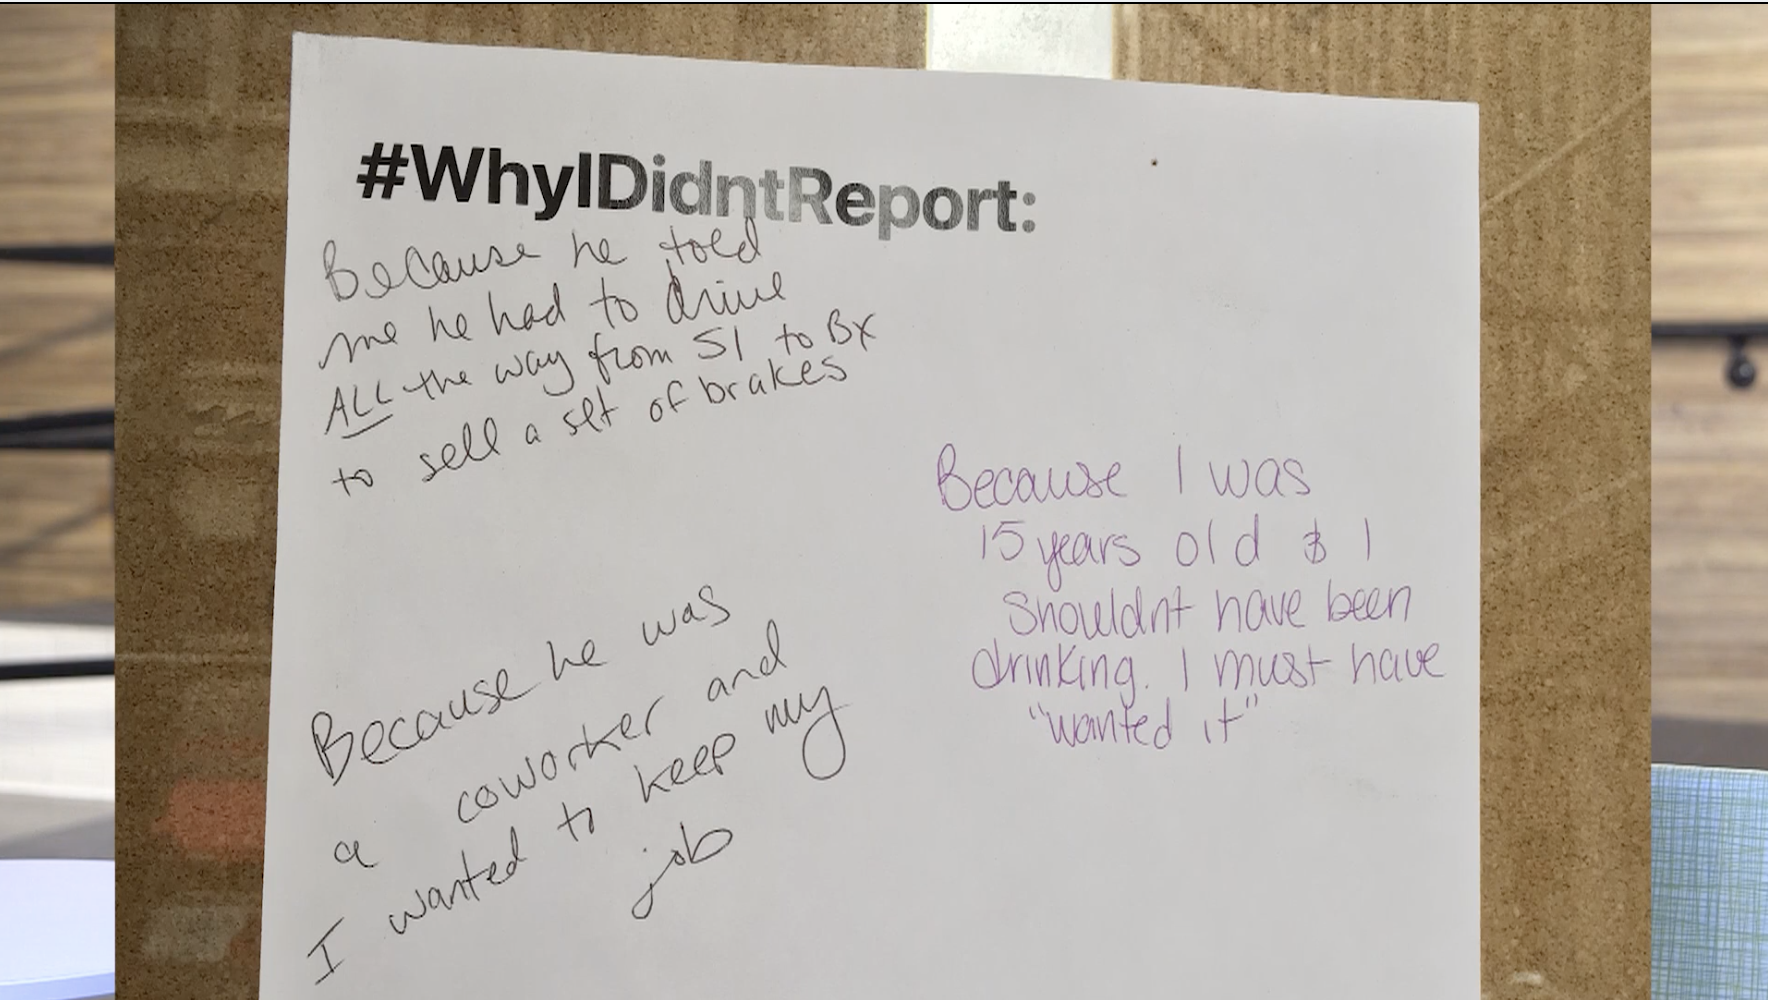 #WhyIDidntReport:
Because he told
me he had to drive
ALL the way from SI to BX
to sell a set of brakes
Because I was
15 years old & I
shouldnt have been
drinking. I must have
"wanted it"
Because he was
a coworker and
I wanted to keep my
job